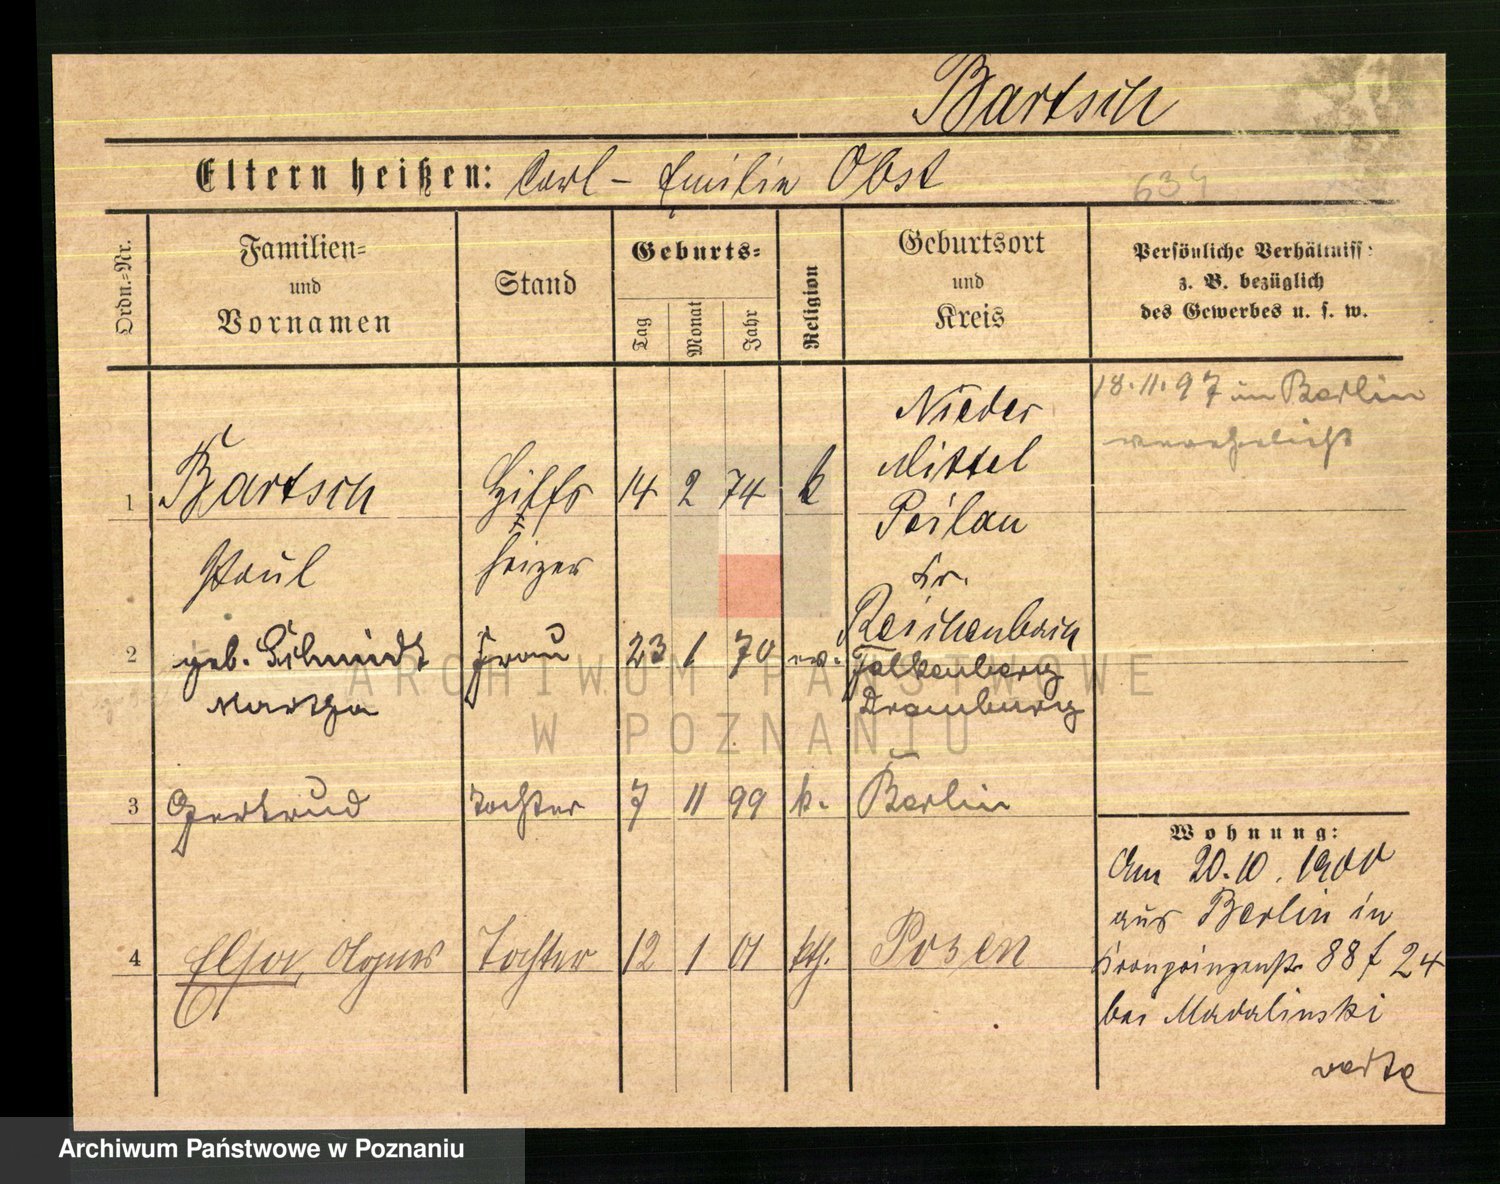 Bartsch
Eltern heißen: Carl - Emilie Obst
634
Ordn.-Nr.
Familien-
und
Vornamen
Stand
Geburts-
Tag
Monat
Jahr
Religion
Geburtsort
und
Kreis
Persönliche Verhältniss
z. B. bezüglich
des Gewerbes u. s. w.
18.11.97 in Berlin
verehelicht
1 Bartsch Hilfs 14 2 74 k Nieder
Mittel
Peilau
Paul heizer Kr.
Reichenbach
2 geb. Schmidt Frau 23 1 70 ev. Falkenberg
Martha Dramburg
3 Gertrud Tochter 7 11 99 k. Berlin
4 Elsa, Agnes Tochter 12 1 01 kth. Posen
Wohnung:
Am 20.10.1900
aus Berlin in
Kronprinzenstr. 88 f 24
bei Madalinski
verte
ARCHIWUM PAŃSTWOWE
W POZNANIU
Archiwum Państwowe w Poznaniu